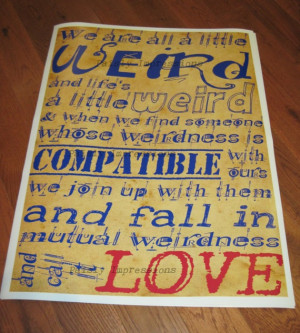 We are all a little
WEIRd
and life's
a little weird
& when we find someone
whose weirdness is
COMPATIBLE with
ours
we join up with them
and fall in
mutual weirdness
and call it LOVE